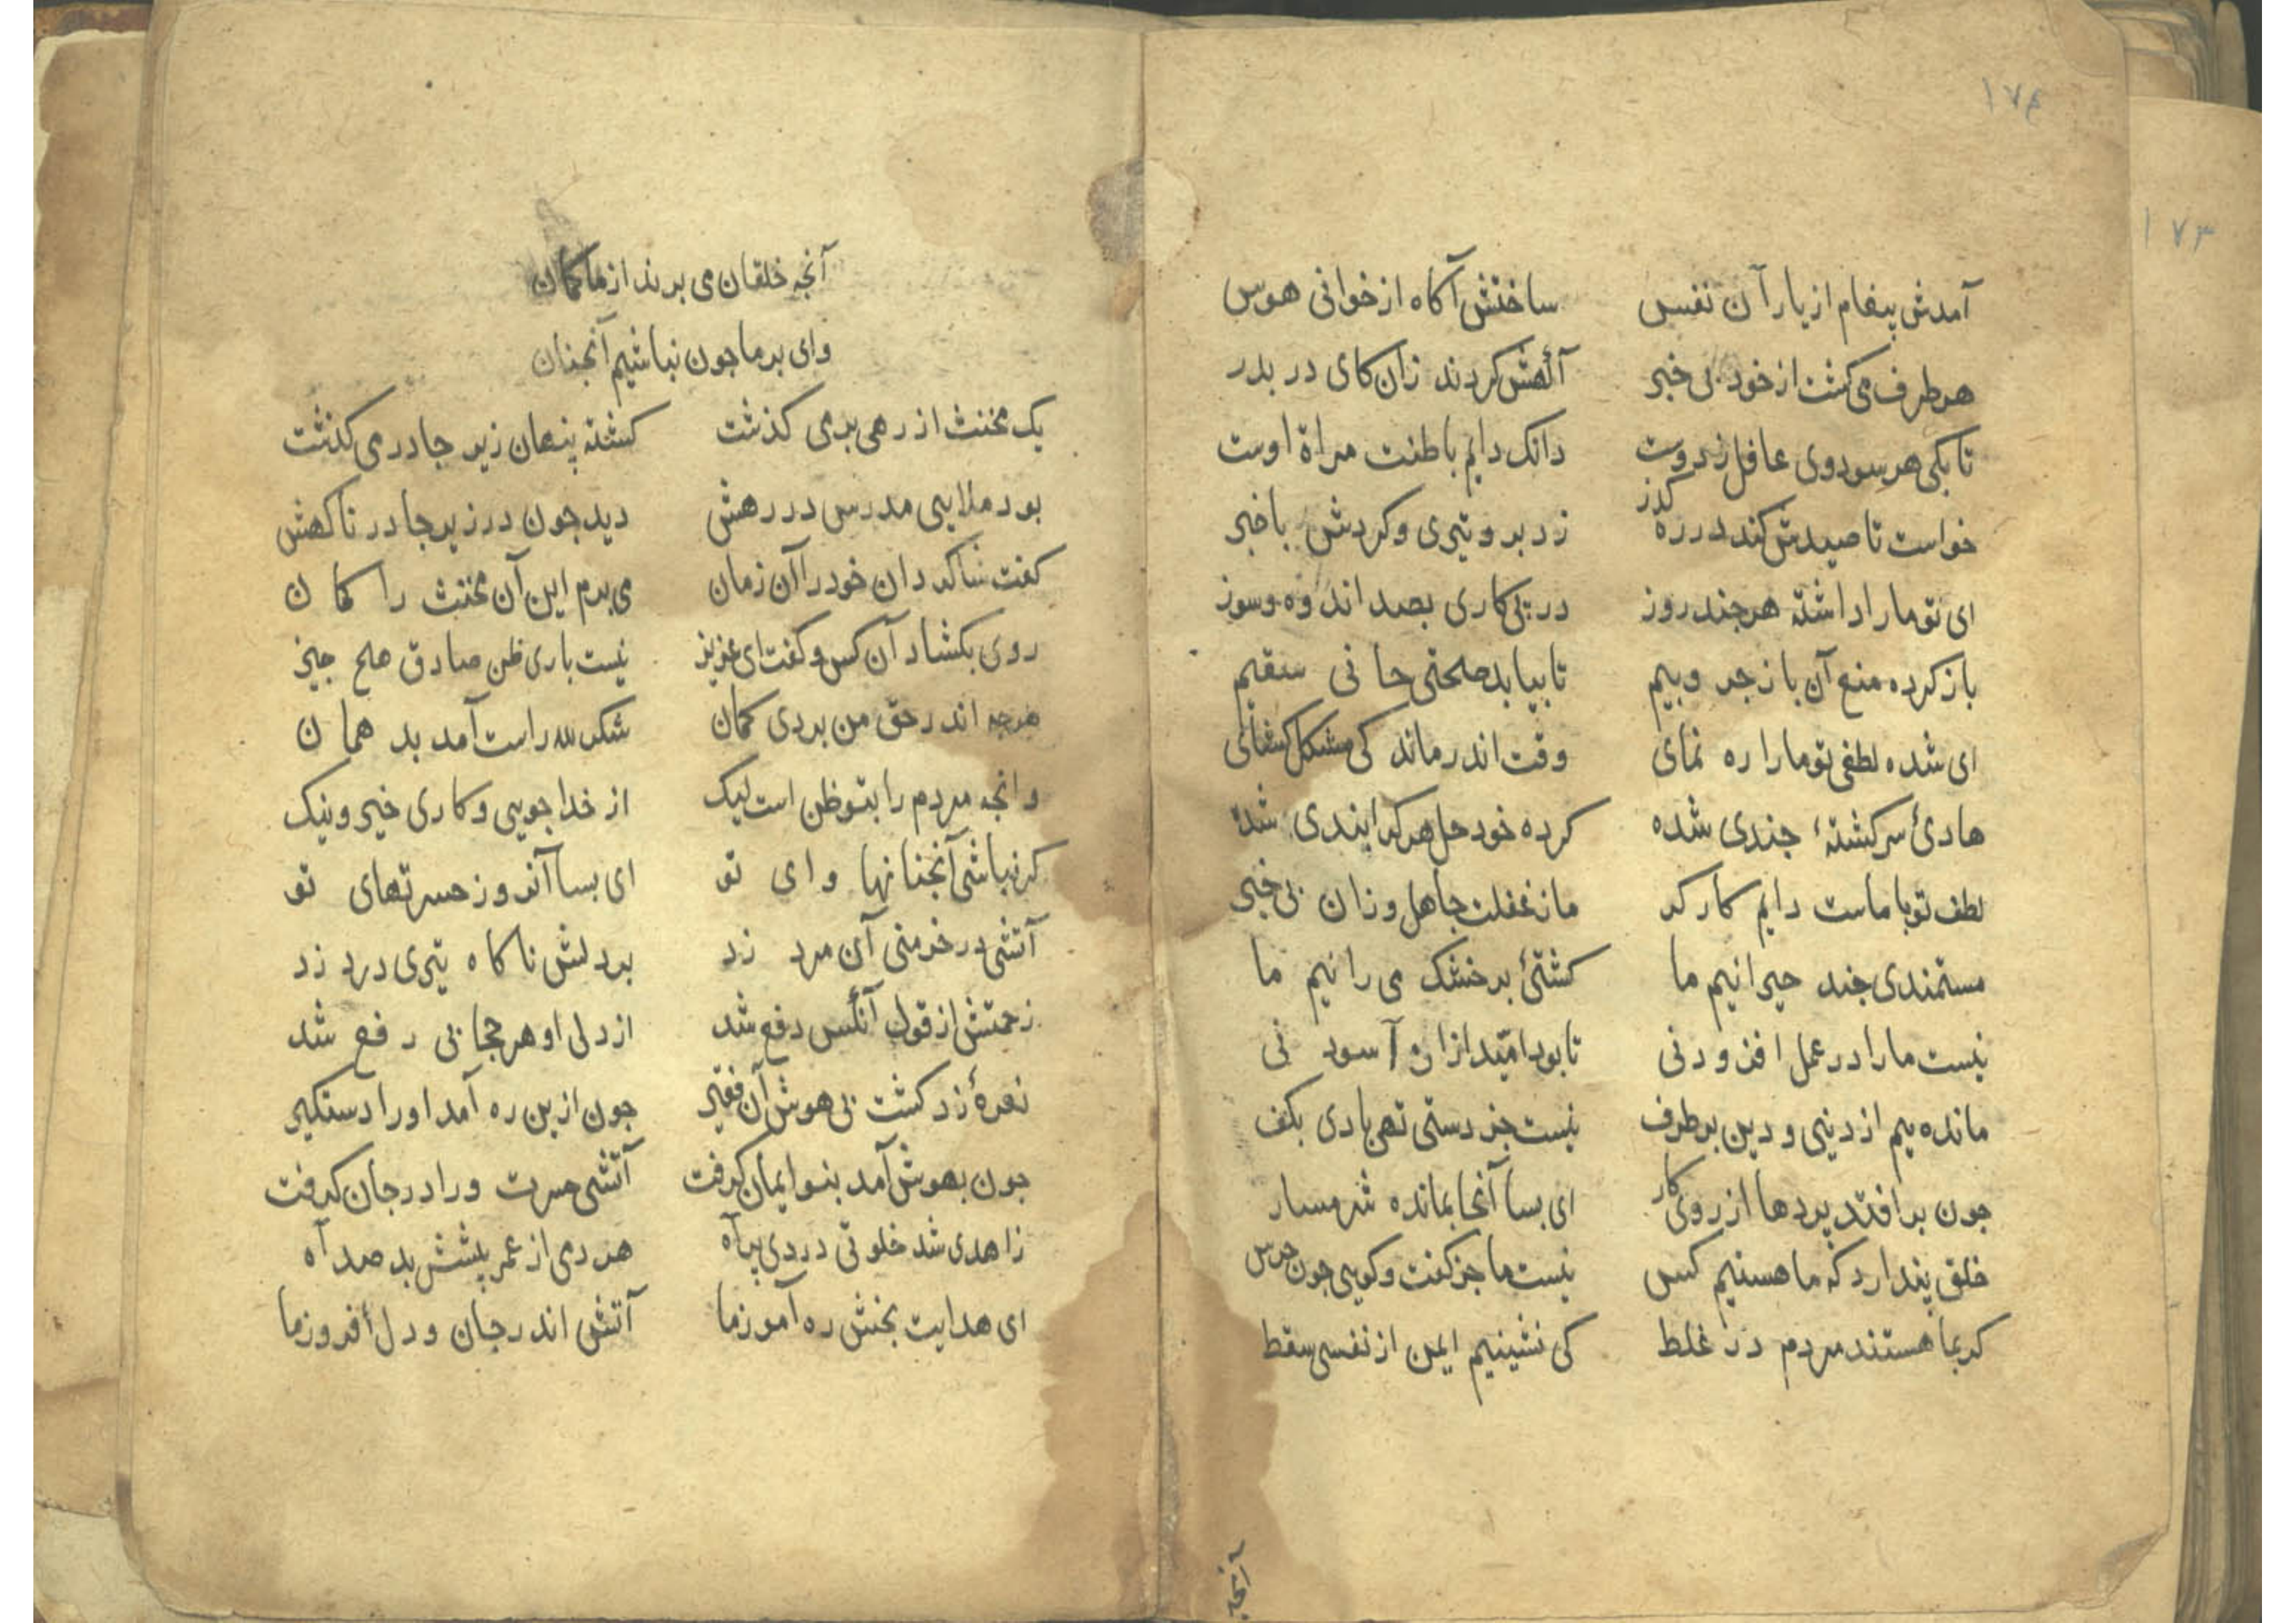 ۱۷۴
۱۷۳
آمدش پیغام از یار آن نفس ساختش آکاه از خوانی هوس
هر طرف می کشت از خود بی خبر آکهش کردند زان کای در بدر
تا بکی هر سو دوی غافل ز دوست دانک دایم باطنت مراة اوست
خواست تا صیدش کند در ره کذر زد برو تیری و کردش با خبر
ای تو ما را داشته هر چند روز در پی کاری بصد اندوه و سوز
باز کرده منع آن با زجر و بیم تا بیابد صحتی جانی سقیم
ای شده لطفی تو ما را ره نمای وقت اندر ماندکی مشکل کشای
هادئ سرکشتهٔ جندی شده کرده خود حل هر کرا بندی شده
لطف تو با ماست دایم کارکر ما ز غفلت جاهل و زان بی خبر
مستمندی جند حیرانیم ما کشتئ بر خشک می رانیم ما
نیست ما را در عمل افزودنی تا بود امّید ازان آسودنی
مانده ییم از دنیی و دین بر طرف نیست جز دستی تهی بادی بکف
جون بر افتد پردها از روی کار ای بسا آنجا بمانده شرمسار
خلق پندارد که ما هستیم کس نیست ما جز کفت و کویی جون جرس
کر بما هستند مردم در غلط کی نشینیم ایمن از نفسی سقط
آنجه
آنجه خلقان می برند از ما کمان
وای بر ما جون نباشیم آنجنان
یک مخنث از رهی بد می کذشت کشته پنهان زیر جادر می کذشت
بود ملایی مدرس در رهش دید جون در زیر جادر ناکهش
کفت شاکردان خود را آن زمان می برم این آن مخنث را کمان
روی بکشاد آن کس و کفت ای عزیز نیست باری ظن صادق هیج جیز
هرجه اندر حق من بردی کمان شکر لله راست آمد بد همان
وانجه مردم را بتو ظن است لیک از خدا جویی و کاری خیر و نیک
کر نباشی آنجنانها وای تو ای بسا آندوز حسرتهای تو
آتشی در خرمنی آن مرد زد بر دلش ناکاه تیری درد زد
زحمتش از قول آنکس دفع شد از دلی او هر حجابی رفع شد
نعرهٔ زد کشت بی هوش آن فقیر جون ازین ره آمد او را دستکیر
جون بهوش آمد بنو ایمان کرفت آتشی حسرت ورا در جان کرفت
زاهدی شد خلوتی دردی پر آه هر دمی از عمر پیشش بد صد آه
ای هدایت بخش ره آموز ما آتش اندر جان و دل افروز ما